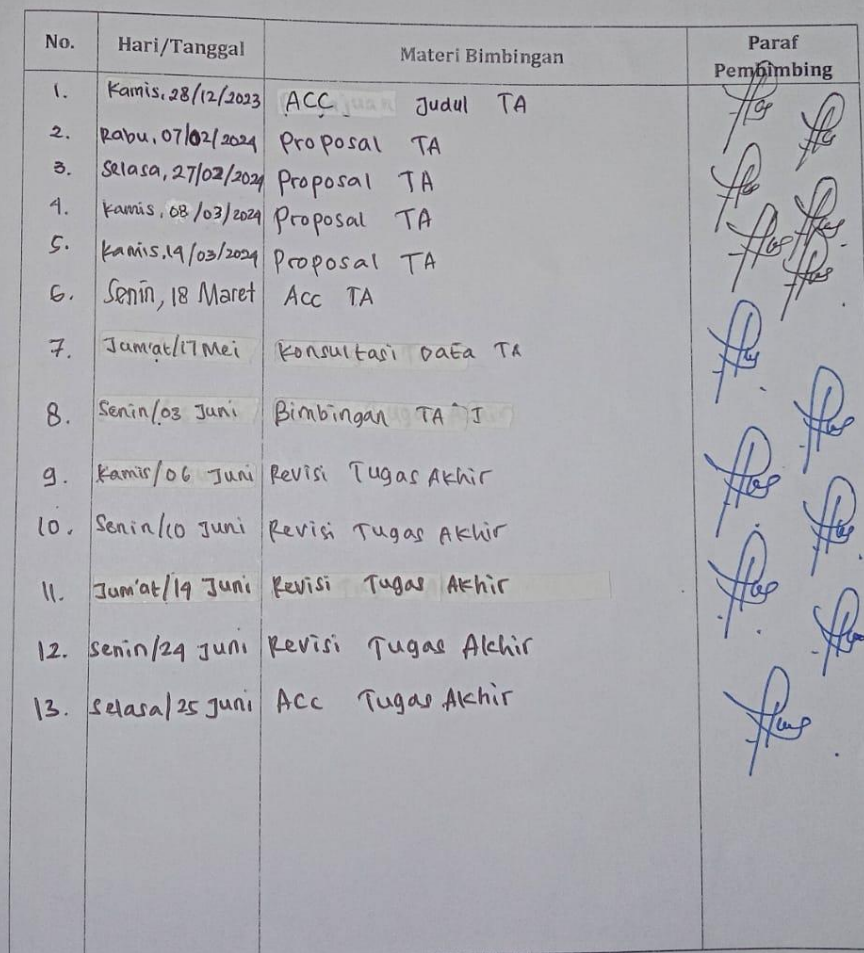 No. Hari/Tanggal Materi Bimbingan Paraf Pembimbing
1. Kamis, 28/12/2023 ACC Judul TA
2. Rabu, 07/02/2024 Proposal TA
3. Selasa, 27/02/2024 Proposal TA
4. Kamis, 08/03/2024 Proposal TA
5. Kamis, 14/03/2024 Proposal TA
6. Senin, 18 Maret Acc TA
7. Jum'at/17 Mei Konsultasi Data TA
8. Senin/03 Juni Bimbingan TA I
9. Kamis/06 Juni Revisi Tugas Akhir
10. Senin/10 Juni Revisi Tugas Akhir
11. Jum'at/14 Juni Revisi Tugas Akhir
12. Senin/24 Juni Revisi Tugas Akhir
13. Selasa/25 Juni ACC Tugas Akhir